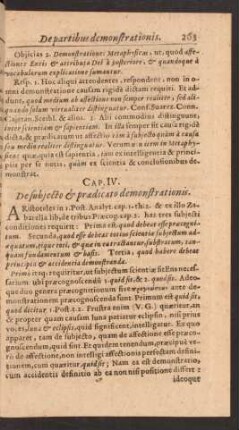 De partibus demonstrationis. 263
Objicias 2. Demonstrationes Metaphysicas, ut, quod affe-
ctiones Entis & attributa Dei à posteriore, & quandoque à
vocabulorum explicatione sumantur.
Resp. 1. Hoc aliqui attendentes, respondent, non in o-
mni demonstratione causam rigidè dictam requiri. Et ad-
dunt, quod medium ab affectione non semper realiter, sed ali-
quando solum virtualiter distinguatur. Conf. Suarez. Com.
Cajetan. Scribl. & alios. 2. Abi commodius distinguunt,
inter scientiam & sapientiam. In illa semper sit causa rigidè
dicta, & prædicatum ut affectio tam à subjecto quàm à causa
seu medio realiter distinguatur. Verum
quæ, quia est sapientia, tam ex intelligentia & princi-
piis per se notis, quàm ex scientia & conclusionibus de-
monstrat.
CAP. IV.
De subjecto & prædicato demonstrationis.
ARistoteles in 1. Post. Analyt. cap. 1. tb. 2. & ex illo Za-
barella lib. de tribus Præcog. cap. 2. has tres subjecti
conditiones requirit: Prima est, quod debeat esse præcogni-
tum. Secunda, quod esse debeat totius scientiæ subjectum ad-
æquatum, cui, tan-
quam fundamentum & basis. Tertia, quod habere debeat
principia & accidentia demonstranda.
Primò itaq; requiritur, ut subjectum scientiæ sit neces-
sariò præcognoscendum 1. quid sit, & 2. quod sit. Adeo-
que duo genera præcognitionum sunt ante de-
monstrationem præcognoscenda sunt Primum est quid sit,
quod dicitur 1. Post. t. 2. Frustra enim (V. G.) quæritur, an
& propter quam causam luna patiatur eclipsin, nisi prius
voces, luna & eclipsis, quid significent, intelligatur. Ex quo
apparet, tam de subjecto, quam de affectione esse præco-
gnoscendum, quid sint. Et quidem tenendum, præcipuè ve-
rò de affectione, non intelligi affectionis perfectam defini-
tionem, cum quæritur, quid sit; Nam ea est demonstratio,
cum accidentis definitio ab ea non nisi positione differt 2
ideoque